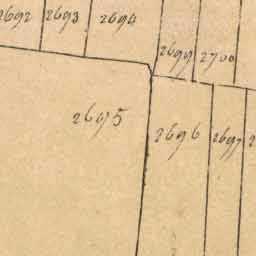 2692 2693 2694
2699 2700
2695
2696 2697